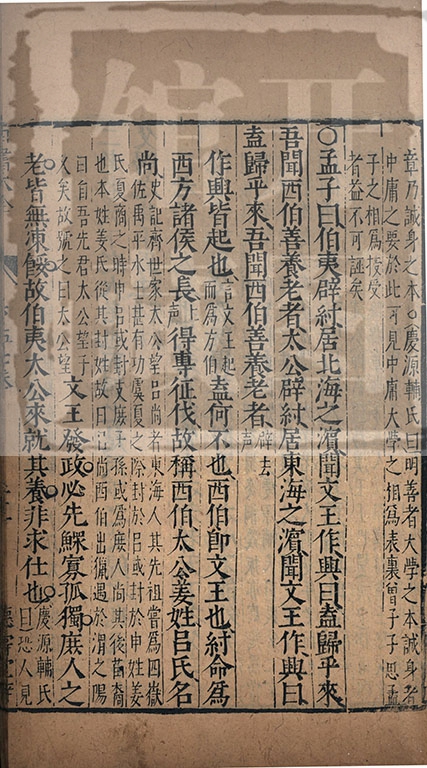 章乃誠身之本○慶源輔氏曰明善者大學之本誠身者
中庸之要於此可見中庸大學之相為表裏曾子子思孟
子之相為授受
者益不可誣矣
○孟子曰伯夷辟紂居北海之濱聞文王作興曰盍歸乎來
吾聞西伯善養老者太公辟紂居東海之濱聞文王作興曰
盍歸乎來吾聞西伯善養老者辟去
聲
作興皆起也言文王起
而為方伯盍何不也西伯即文王也紂命為
西方諸侯之長上
聲得專征伐故稱西伯太公姜姓呂氏名
尚史記齊世家太公望呂尚者東海人其先祖嘗為四嶽
佐禹平水土甚有功虞夏之際封於呂或封於申姓姜
氏夏商之時申呂或封支庶子孫或為庶人尚其後苗裔
也本姓姜氏從其封姓故曰呂尚西伯出獵遇於渭之陽
曰自吾先君太公望子
久矣故號之曰太公望文王發政必先鰥寡孤獨庶人之
老皆無凍餒故伯夷太公來就其養非求仕也慶源輔氏
曰恐人見